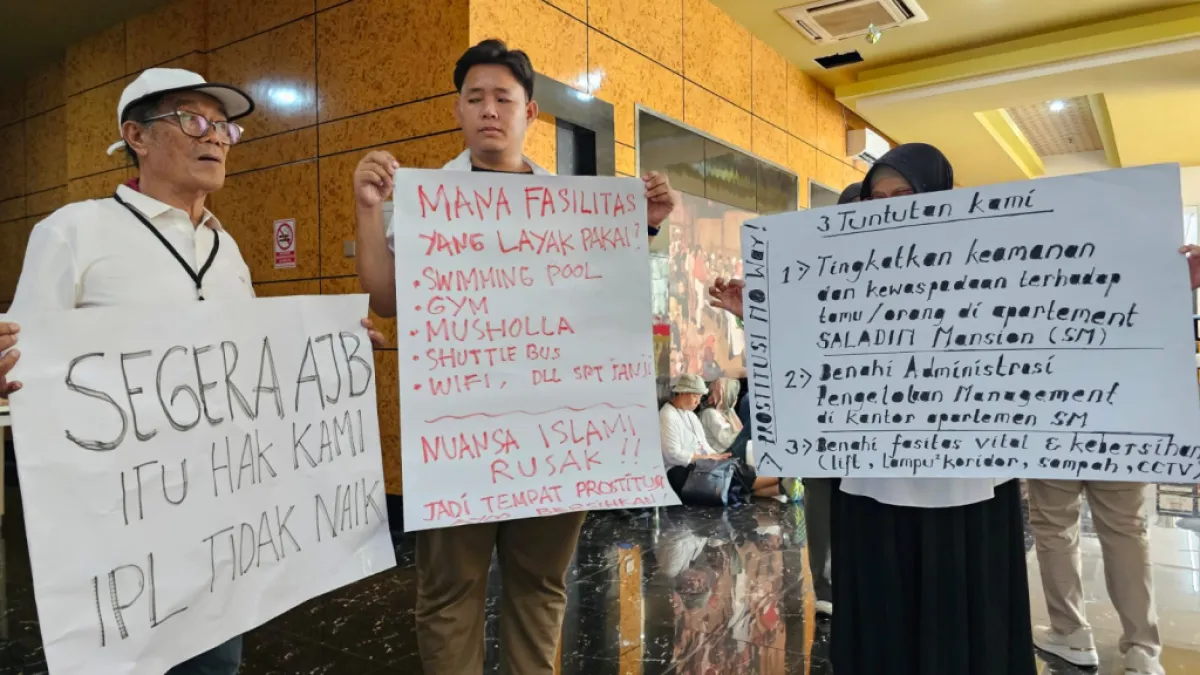 SEGERA AJB
ITU HAK KAMI
IPL TIDAK NAIK
MANA FASILITAS
YANG LAYAK PAKAI?
• SWIMMING POOL
• GYM
• MUSHOLLA
• SHUTTLE BUS
• WIFI, DLL SPT JANJI
NUANSA ISLAMI
RUSAK !!
JADI TEMPAT PROSTITUSI
PROSTITUSI NO WAY!
3 Tuntutan kami
1> Tingkatkan keamanan
dan kewaspadaan terhadap
tamu/orang di apartement
SALADIM Mansion (SM)
2> Benahi Administrasi
Pengelolaan Management
di kantor apartemen SM
3> Benahi fasitas vital & kebersihan
(lift, lampu² koridor, sampah, CCTV)